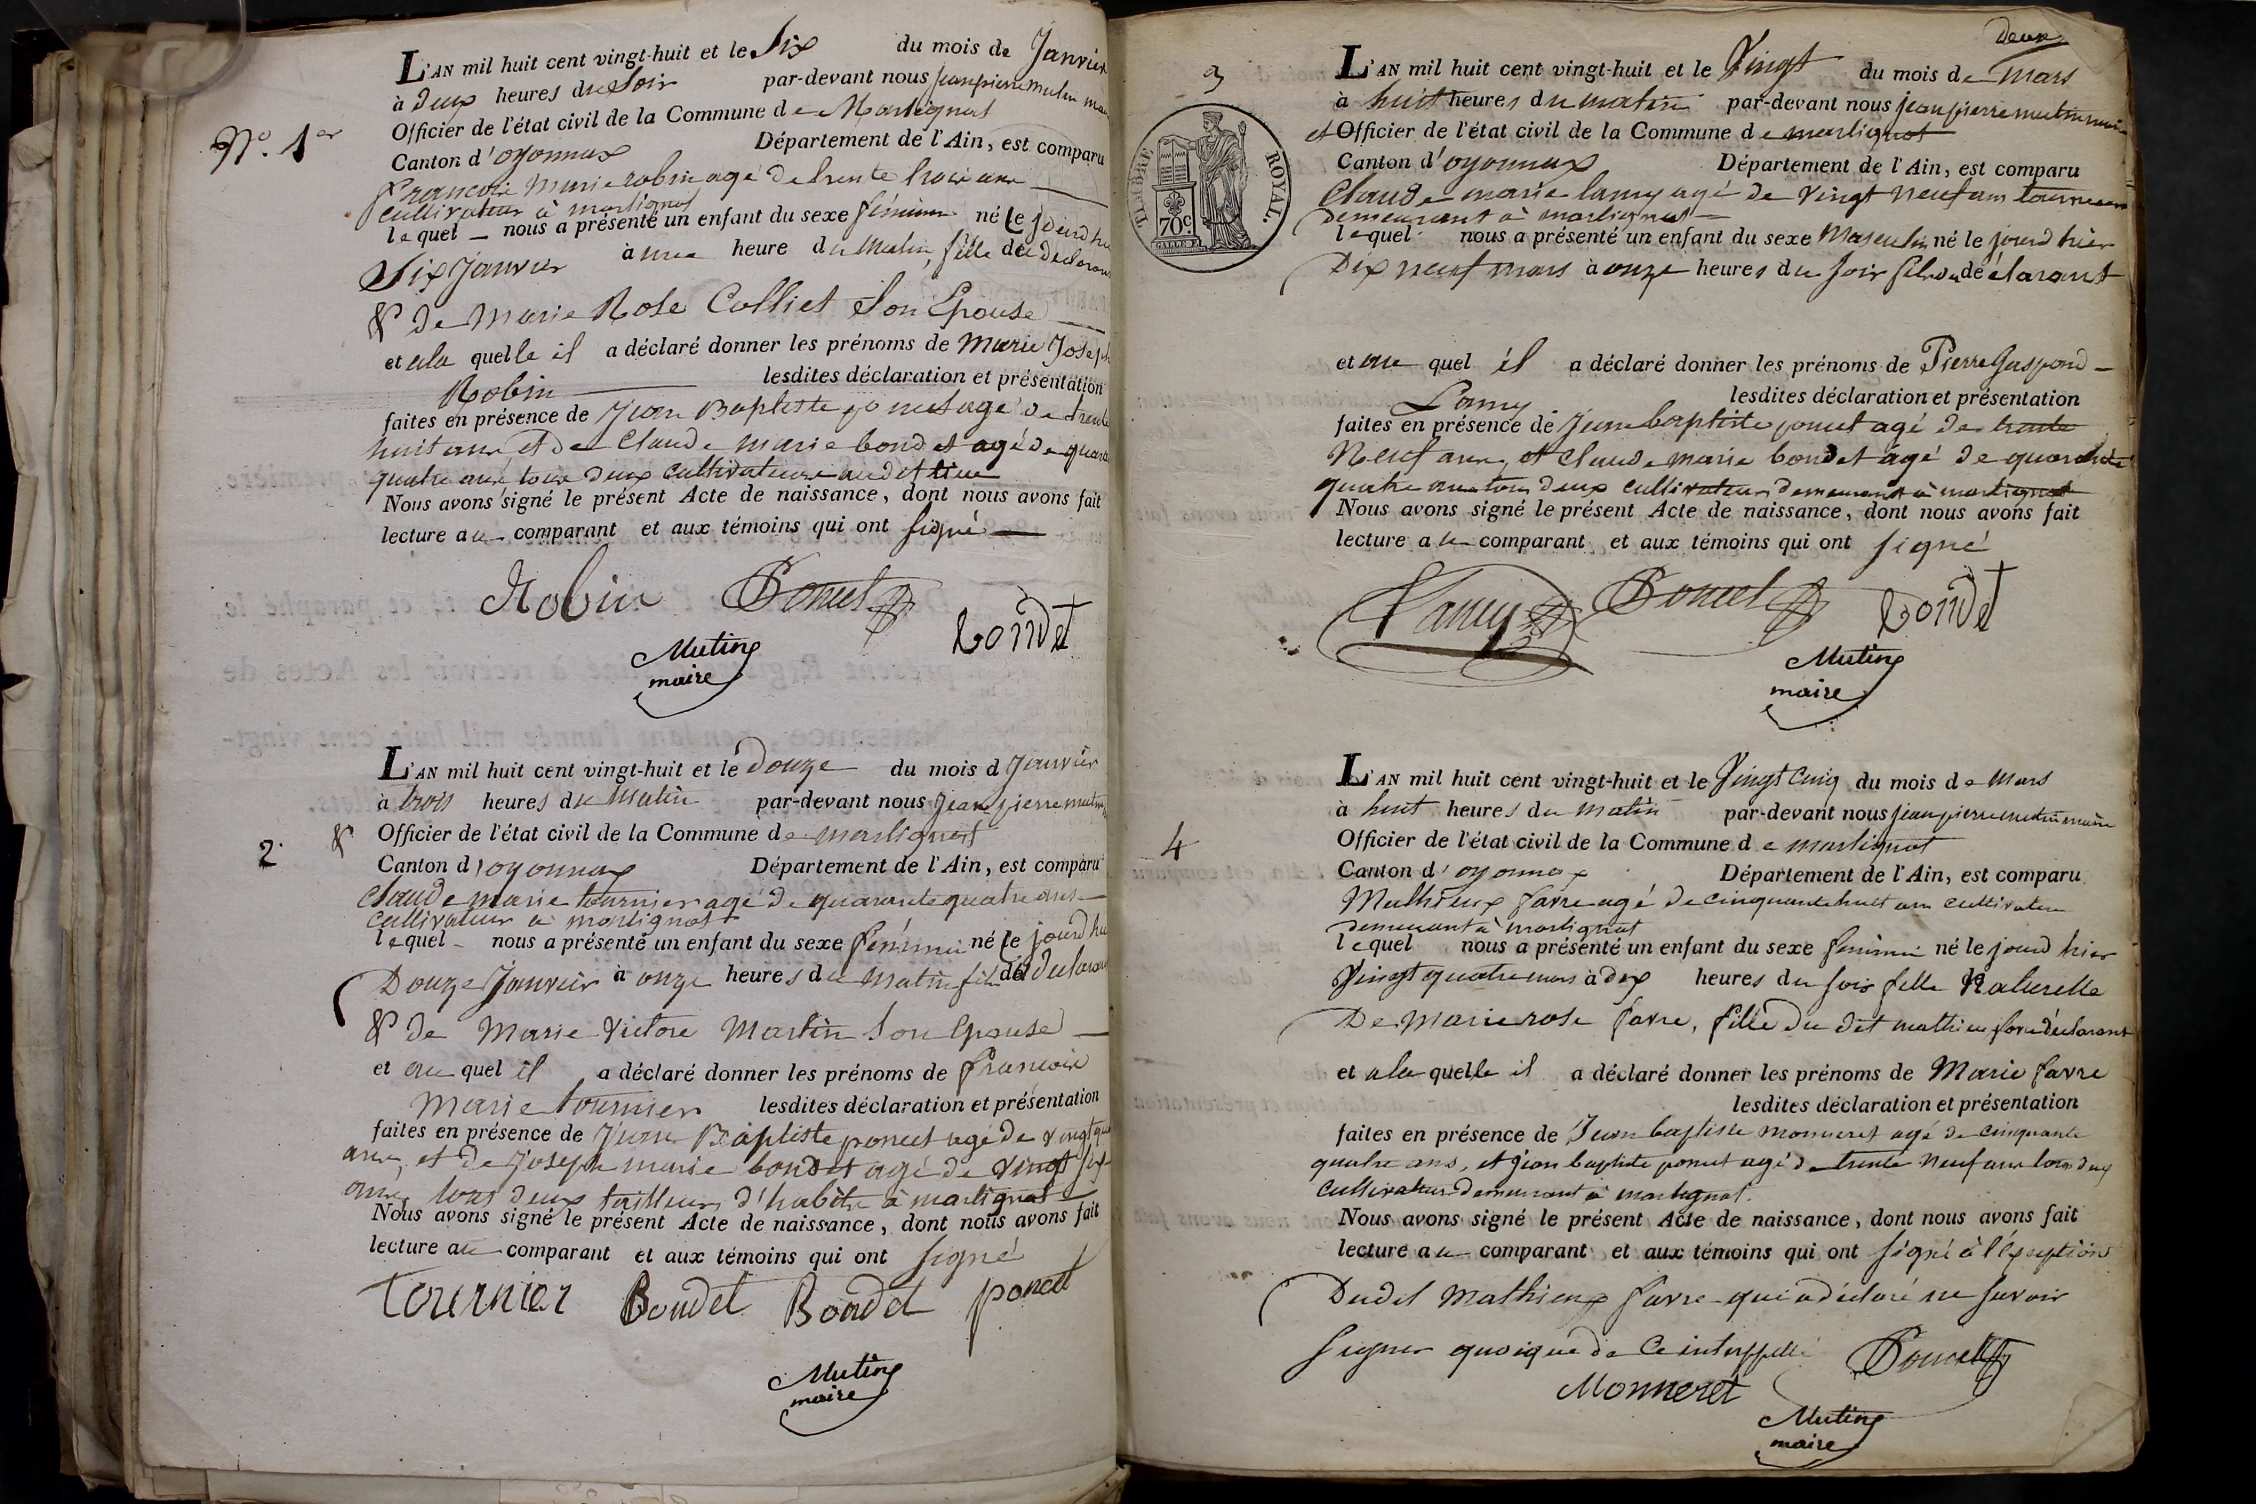 L'AN mil huit cent vingt-huit et le Six du mois de Janvier
à deux heures du Soir par-devant nous jean pierre mutin mai
Officier de l'état civil de la Commune de Martignat
N.º 1er
Canton d'oyonnax Département de l'Ain, est comparu
francois Marie robin agé de trente trois ans
cultivateur à martignat
lequel nous a présenté un enfant du sexe féminin né le jourd'hui
Six Janvier à une heure du Matin, fille du déclarant
& de Marie Rose Colliet Son Epouse
et ala quelle il a déclaré donner les prénoms de Marie Joseph
Robin lesdites déclaration et présentation
faites en présence de Jean Baptiste poncet agé de trente
huit ans et de Claude marie bondet agé de quarante
quatre ans tous deux cultivateurs audit lieu
Nous avons signé le présent Acte de naissance, dont nous avons fait
lecture au comparant et aux témoins qui ont signé
Robin Poncet
bondet
Mutin
maire
L'AN mil huit cent vingt-huit et le Douze du mois d Janvier
à trois heures du Matin par-devant nous Jean pierre mutin
& Officier de l'état civil de la Commune de martignat
2.
Canton d'oyonnax Département de l'Ain, est comparu
Claude marie tournier agé de quarante quatre ans
Cultivateur à martignat
lequel nous a présenté un enfant du sexe féminin né le jourd'hui
Douze Janvier à onze heures du Matin fils du déclarant
& de Marie Victore Martin Son Epouse
et au quel il a déclaré donner les prénoms de francois
Marie tournier lesdites déclaration et présentation
faites en présence de Jean Baptiste poncet agé de vingt
ans, et de Joseph marie bondet agé de vingt six
ans, tous deux tailleurs d'habits à martignat
Nous avons signé le présent Acte de naissance, dont nous avons fait
lecture au comparant et aux témoins qui ont signé
Tournier Bondet Bondet poncet
Mutin
maire
deux
3
L'AN mil huit cent vingt-huit et le Vingt du mois de Mars
à huit heures du matin par-devant nous jean pierre mutin maire
et Officier de l'état civil de la Commune de martignat
TIMBRE ROYAL.
70c
Canton d'oyonnax Département de l'Ain, est comparu
Claude marie lamy agé de vingt neuf ans tourneur
demeurant à martignat
lequel nous a présenté un enfant du sexe Masculin né le jourd hier
Dix neuf mars à onze heures du soir fils du déclarant
et au quel il a déclaré donner les prénoms de Pierre Gaspard
Lamy lesdites déclaration et présentation
faites en présence de Jean baptiste poncet agé de trente
Neuf ans, et Claude marie bondet agé de quarante
quatre ans tous deux cultivateurs demeurant à martignat
Nous avons signé le présent Acte de naissance, dont nous avons fait
lecture au comparant et aux témoins qui ont signé
Lamy Poncet bondet
Mutin
maire
L'AN mil huit cent vingt-huit et le Vingt Cinq du mois de Mars
à huit heures du matin par-devant nous jean pierre mutin maire
Officier de l'état civil de la Commune de martignat
4
Canton d'oyonnax Département de l'Ain, est comparu
Mathieux favre agé de cinquante huit ans cultivateur
demeurant à martignat
lequel nous a présenté un enfant du sexe féminin né le jourd hier
Vingt quatre mars à dix heures du soir fille Naturelle
De Marie rose favre, fille du dit mathieu favre déclarant
et ala quelle il a déclaré donner les prénoms de Marie favre
lesdites déclaration et présentation
faites en présence de Jean baptiste monneret agé de cinquante
quatre ans, et Jean baptiste poncet agé de trente neuf ans tous deux
cultivateurs demeurant à martignat.
Nous avons signé le présent Acte de naissance, dont nous avons fait
lecture au comparant et aux témoins qui ont signé à l'éxception
Dudit Mathieux favre qui a déclaré ne savoir
Signer quoique de ce interppellé Poncet
Monneret
Mutin
maire